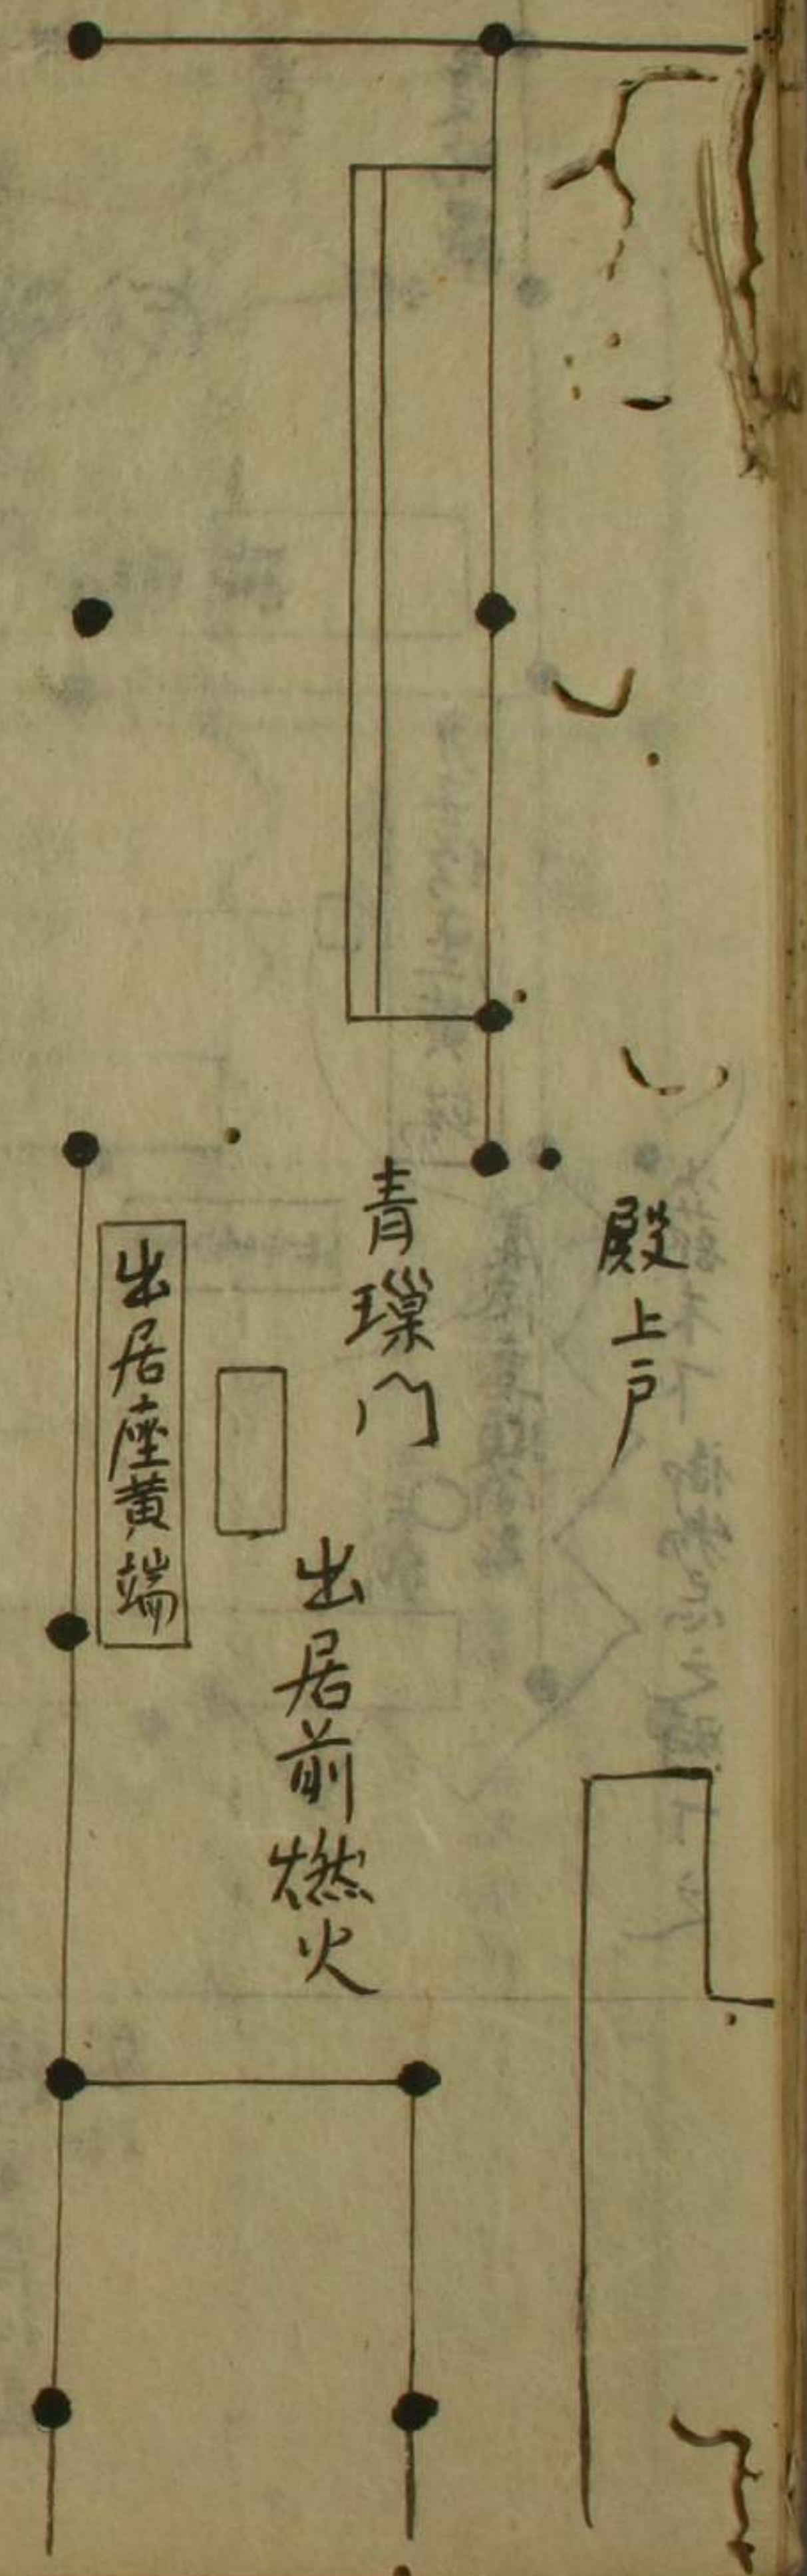 殿上戸
青璅門
出居前燃火
出居座黄端